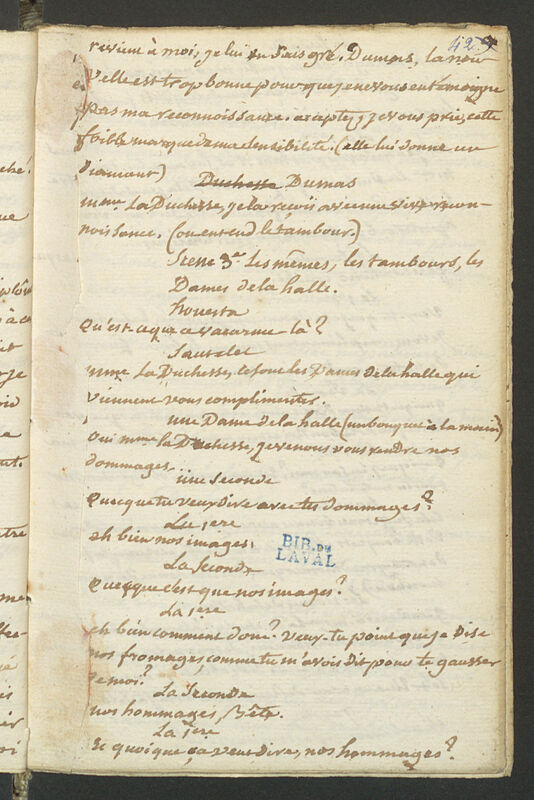 42.
revient à moi, je lui en sais gré. Dumas, la nou-
velle est trop bonne pour que je ne vous en témoigne
pas ma reconnoissance. acceptez, je vous prie, cette
foible marque de ma sensibilité. (elle lui donne un
diamant)
Duchesse Dumas
mme La Duchesse, je la reçois avec une vive recon-
noissance. (on entend le tambour.)
Scene 3e Les mêmes, les tambours, les
Dames de la halle.
Qu'est-ce que ce vacarme-là?
Sautelet
mme La Duchesse, ce sont les Dames de la halle qui
viennent vous complimenter.
une Dame de la halle (un bouquet a la main)
Oui mme la Duchesse, je venons vous rendre nos
dommages.
une seconde
Queque tu veux dire avec tes dommages?
La 1ere
eh bien nos images.
La Seconde
Queque c'est que nos images?
La 1ere
eh bien comment donc? veux-tu point que je dise
nos fromages, comme tu m'avois dit pour te gausser
de moi?
La Seconde
nos hommages, Bête.
La 1ere
Et quoi que ça veut dire, nos hommages?
BIB. DE
LAVAL